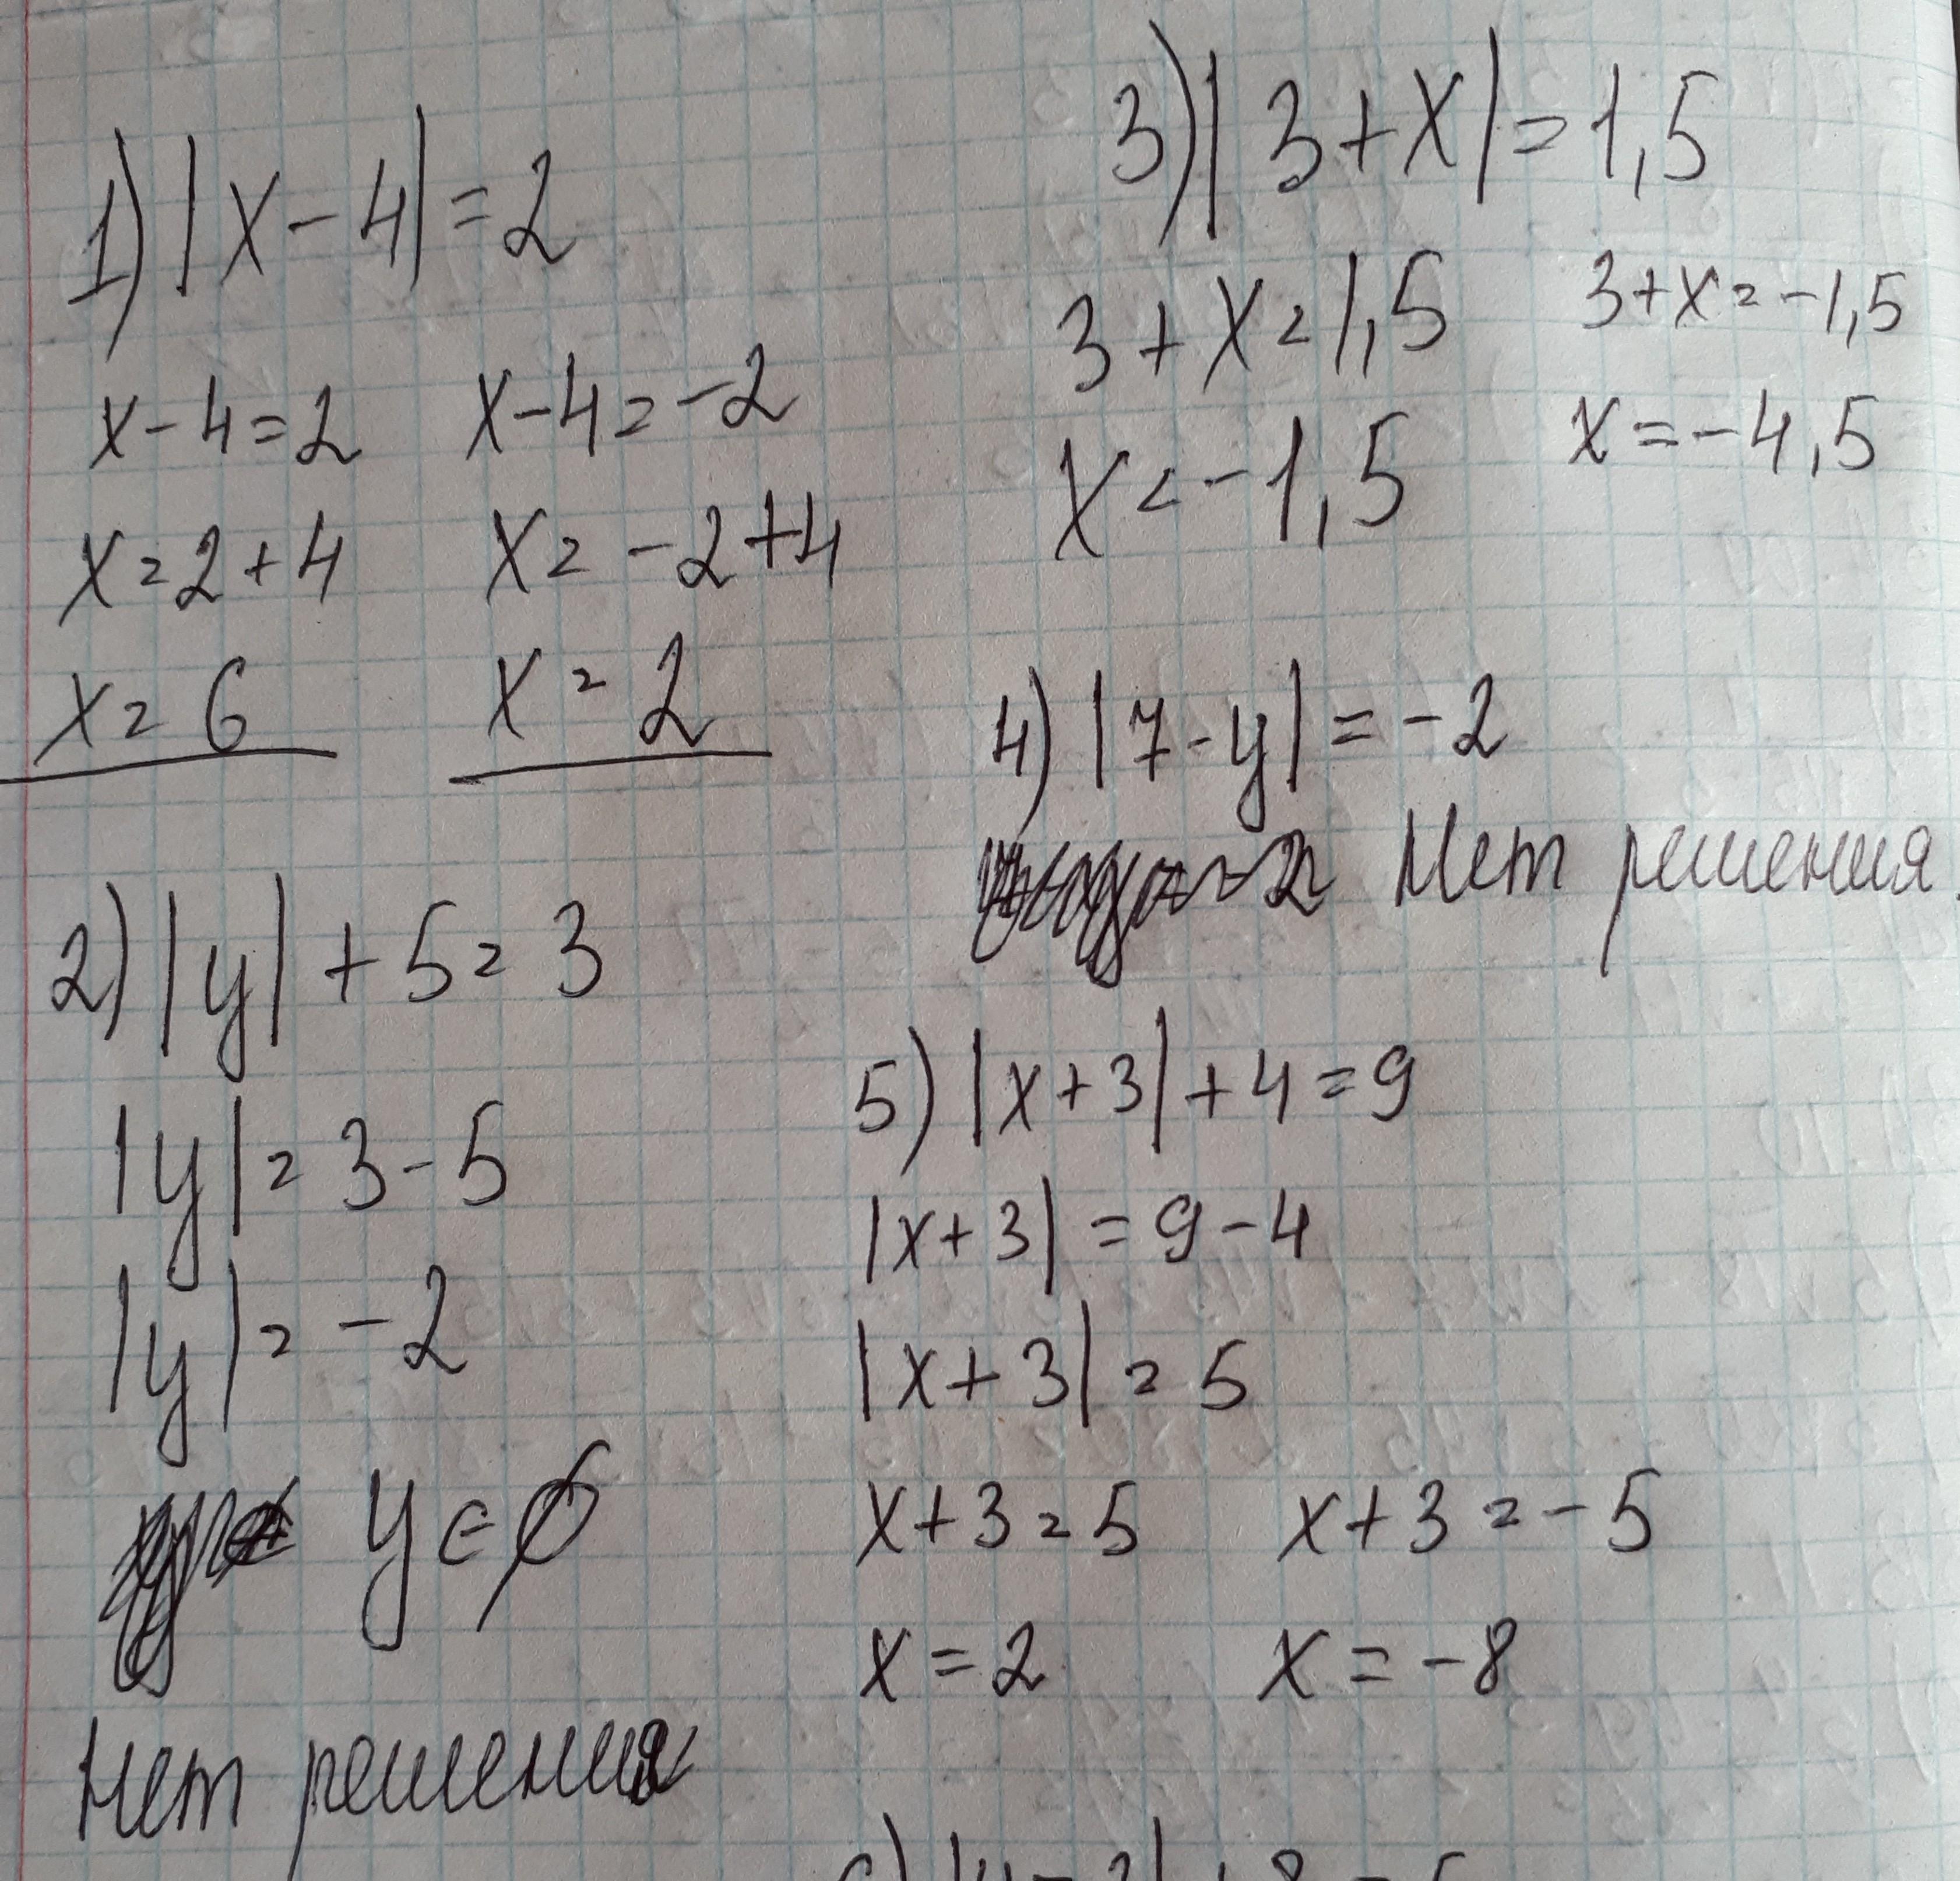 1) |x-4|=2
x-4=2 x-4=-2
x=2+4 x=-2+4
x=6 x=2
2) |y|+5=3
|y|=3-5
|y|=-2
y=∅
Нет решения
3) |3+x|=1,5
3+x=1,5 3+x=-1,5
x=-1,5 x=-4,5
4) |7-y|=-2
Нет решения
5) |x+3|+4=9
|x+3|=9-4
|x+3|=5
x+3=5 x+3=-5
x=2 x=-8